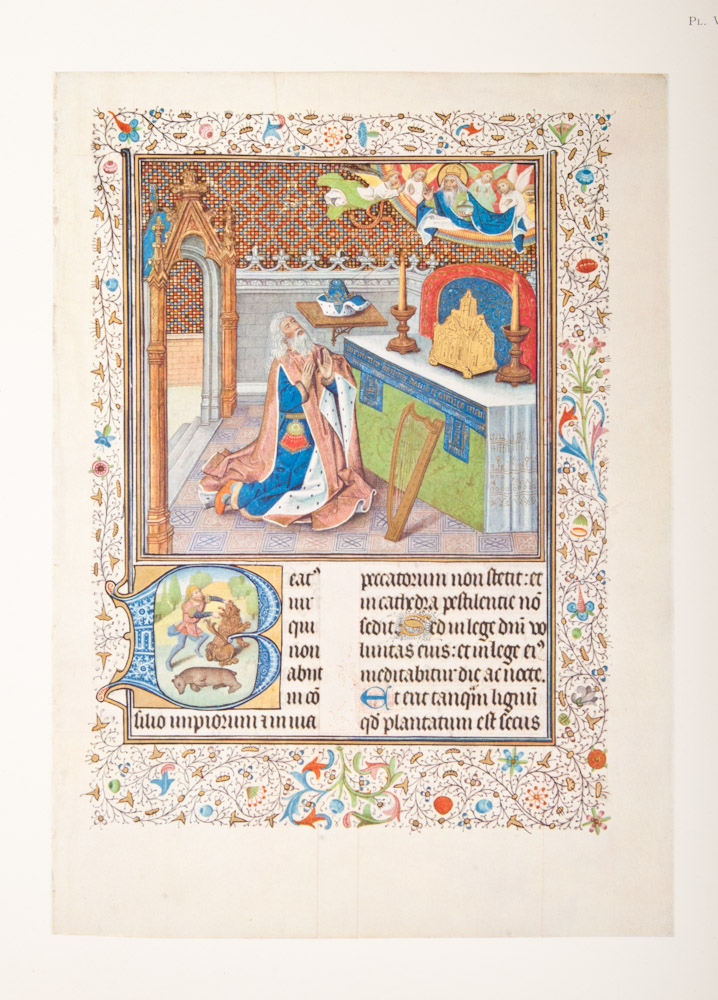 PL. V
eatꝰ
uir
qui
non
abiit
in cō
silio impiorum ⁊ in uia
peccatorum non stetit: et
in cathedra pestilentie nō
sedit. Sed in lege dn̄i vo
luntas eius: et in lege eiꝰ
meditabitur die ac nocte.
Et erit tanqȝm lignū
qd̄ plantatum est secus